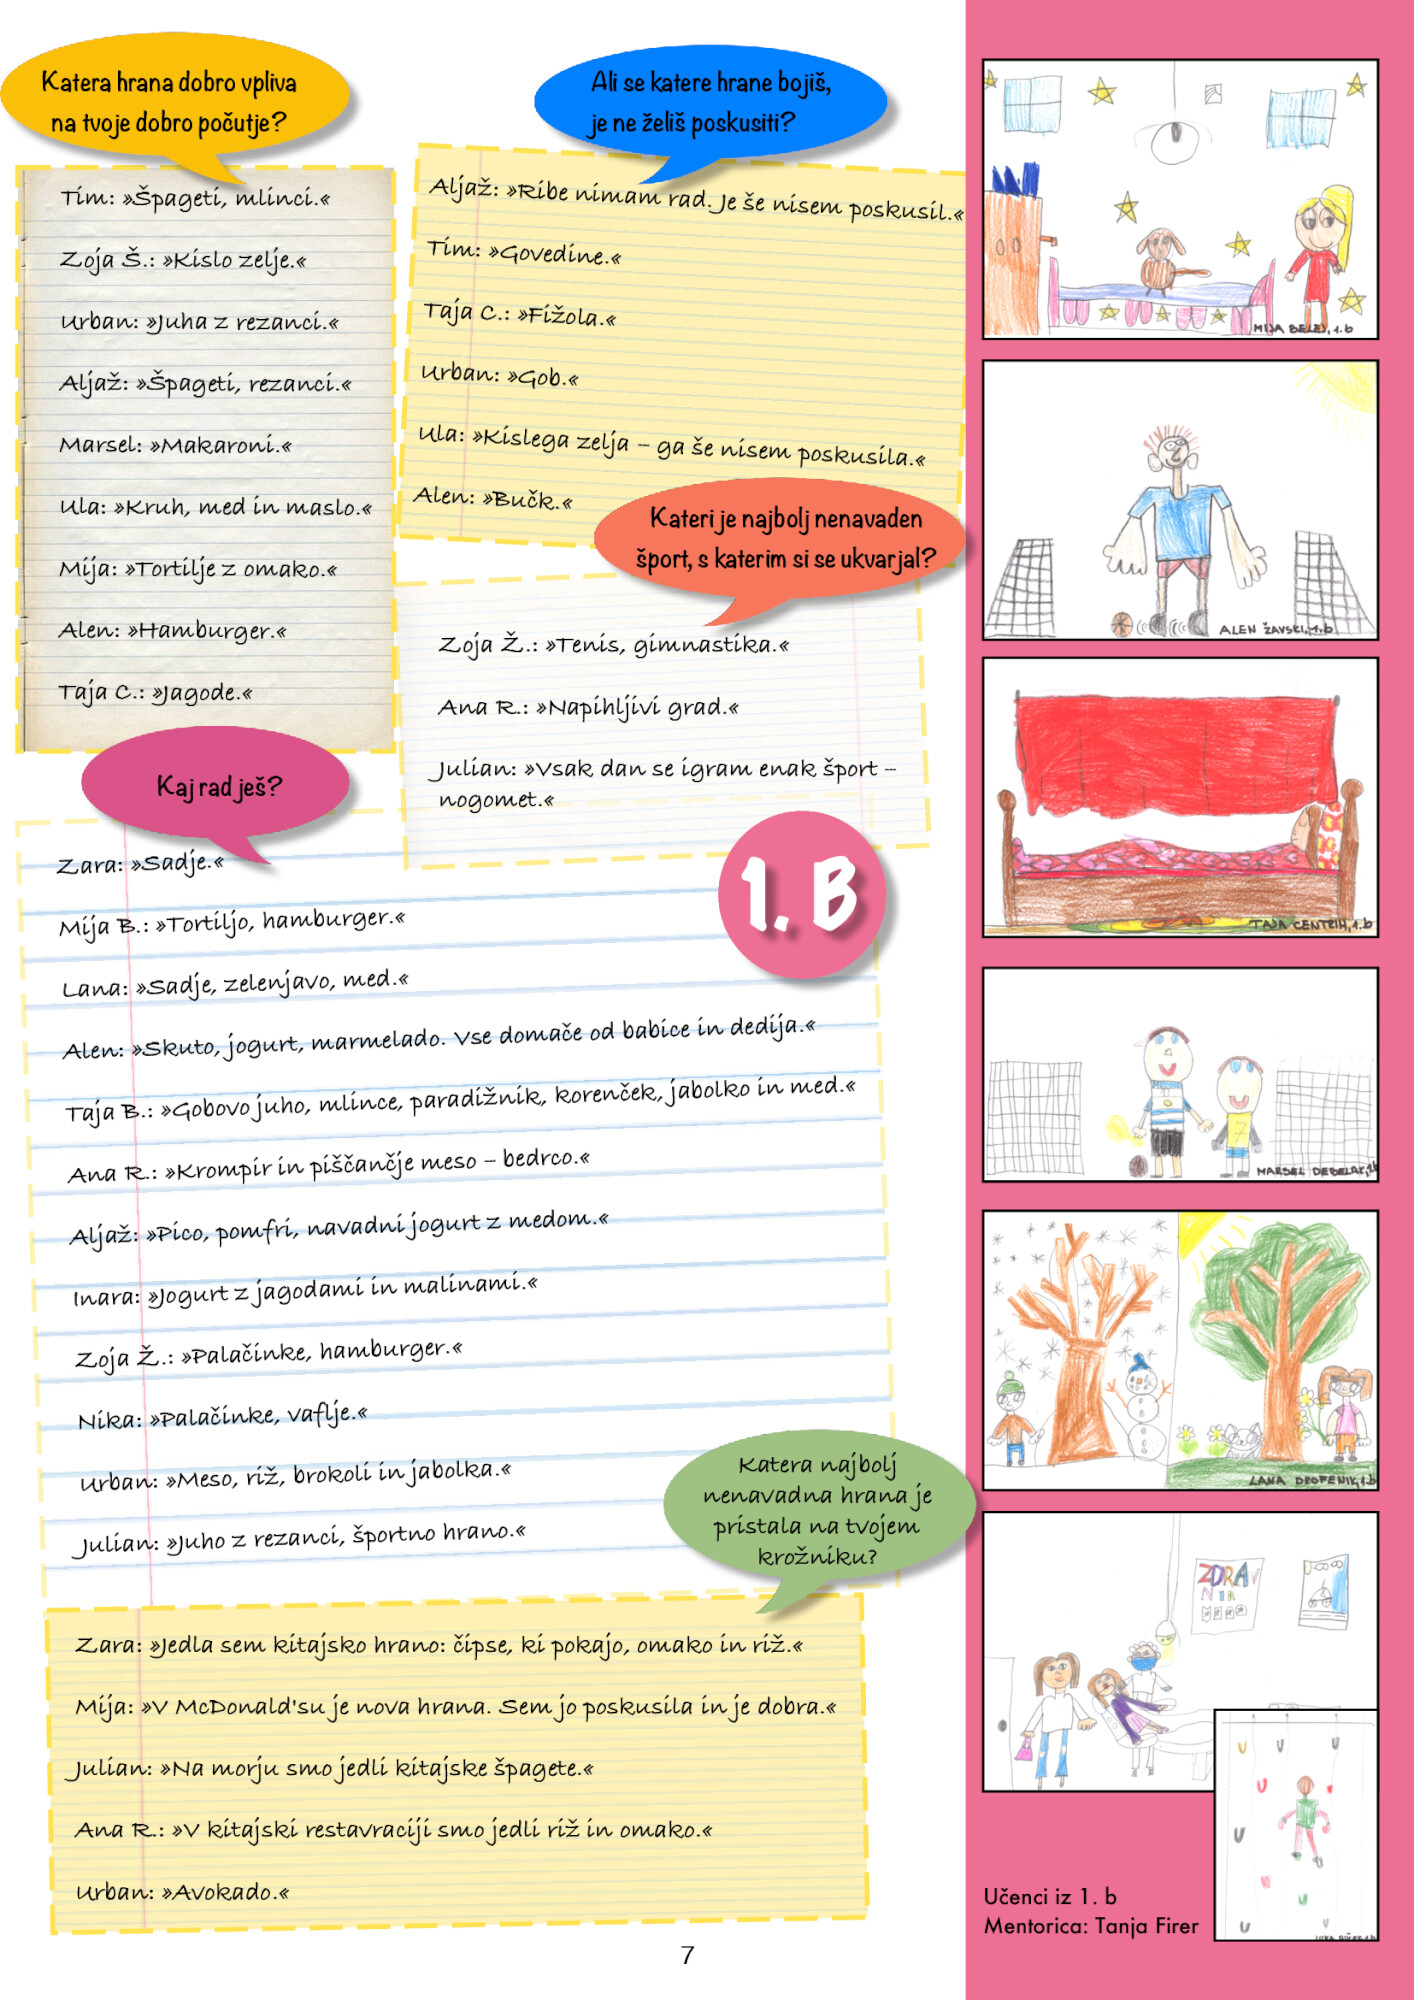 Katera hrana dobro vpliva
na tvoje dobro počutje?
Tim: »Špageti, mlinci.«
Zoja Š.: »Kislo zelje.«
Urban: »Juha z rezanci.«
Aljaž: »Špageti, rezanci.«
Marsel: »Makaroni.«
Ula: »Kruh, med in maslo.«
Mija: »Tortilje z omako.«
Alen: »Hamburger.«
Taja C.: »Jagode.«
Ali se katere hrane bojiš,
je ne želiš poskusiti?
Aljaž: »Ribe nimam rad. Je še nisem poskusil.«
Tim: »Govedine.«
Taja C.: »Fižola.«
Urban: »Gob.«
Ula: »Kislega zelja – ga še nisem poskusila.«
Alen: »Bučk.«
Kateri je najbolj nenavaden
šport, s katerim si se ukvarjal?
Zoja Ž.: »Tenis, gimnastika.«
Ana R.: »Napihljivi grad.«
Julian: »Vsak dan se igram enak šport –
nogomet.«
1. B
Kaj rad ješ?
Zara: »Sadje.«
Mija B.: »Tortiljo, hamburger.«
Lana: »Sadje, zelenjavo, med.«
Alen: »Skuto, jogurt, marmelado. Vse domače od babice in dedija.«
Taja B.: »Gobovo juho, mlince, paradižnik, korenček, jabolko in med.«
Ana R.: »Krompir in piščančje meso – bedrco.«
Aljaž: »Pico, pomfri, navadni jogurt z medom.«
Inara: »Jogurt z jagodami in malinami.«
Zoja Ž.: »Palačinke, hamburger.«
Nika: »Palačinke, vaflje.«
Urban: »Meso, riž, brokoli in jabolka.«
Julian: »Juho z rezanci, športno hrano.«
Katera najbolj
nenavadna hrana je
pristala na tvojem
krožniku?
Zara: »Jedla sem kitajsko hrano: čipse, ki pokajo, omako in riž.«
Mija: »V McDonald'su je nova hrana. Sem jo poskusila in je dobra.«
Julian: »Na morju smo jedli kitajske špagete.«
Ana R.: »V kitajski restavraciji smo jedli riž in omako.«
Urban: »Avokado.«
MIJA BELEJ, 1.b
ALEN ŽAVSKI, 1.b
TAJA CENTRIH, 1.b
MARSEL DEBELAK, 1.b
LANA DROFENIK, 1.b
ZDRAV
Učenci iz 1. b
Mentorica: Tanja Firer
7